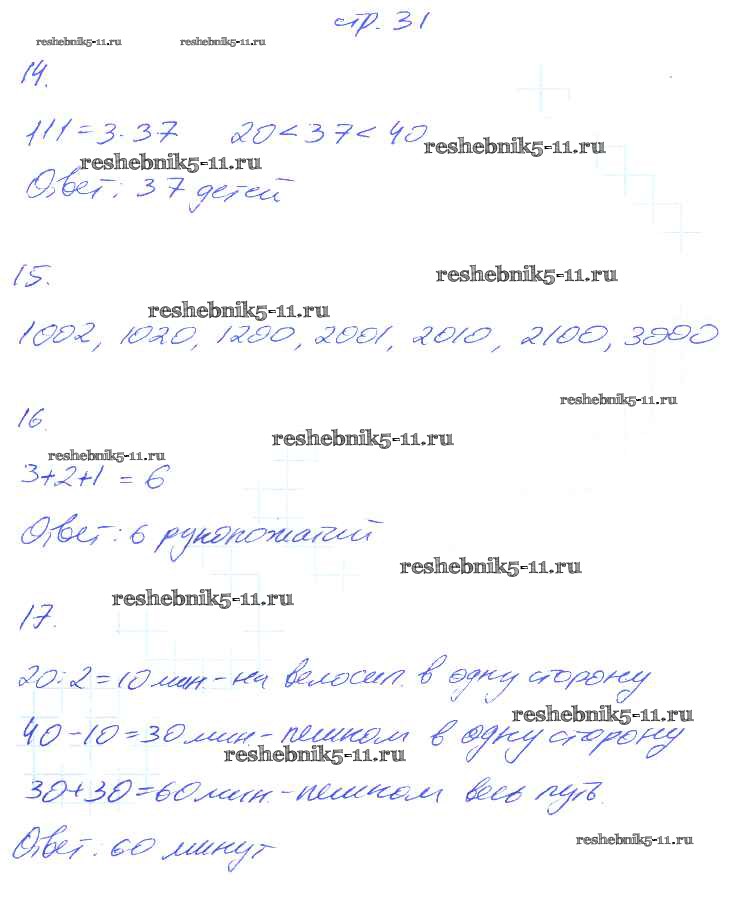 стр. 31
reshebnik5-11.ru reshebnik5-11.ru
14.
111 = 3 · 37 20 < 37 < 40
reshebnik5-11.ru
reshebnik5-11.ru
Ответ: 37 детей
15.
reshebnik5-11.ru
reshebnik5-11.ru
1002, 1020, 1200, 2001, 2010, 2100, 3000
reshebnik5-11.ru
16.
reshebnik5-11.ru
reshebnik5-11.ru
3+2+1 = 6
Ответ: 6 рукопожатий
reshebnik5-11.ru
reshebnik5-11.ru
17.
20 : 2 = 10 мин. - на велосип. в одну сторону
reshebnik5-11.ru
40 - 10 = 30 мин. - пешком в одну сторону
reshebnik5-11.ru
30 + 30 = 60 мин. - пешком весь путь.
reshebnik5-11.ru
Ответ: 60 минут